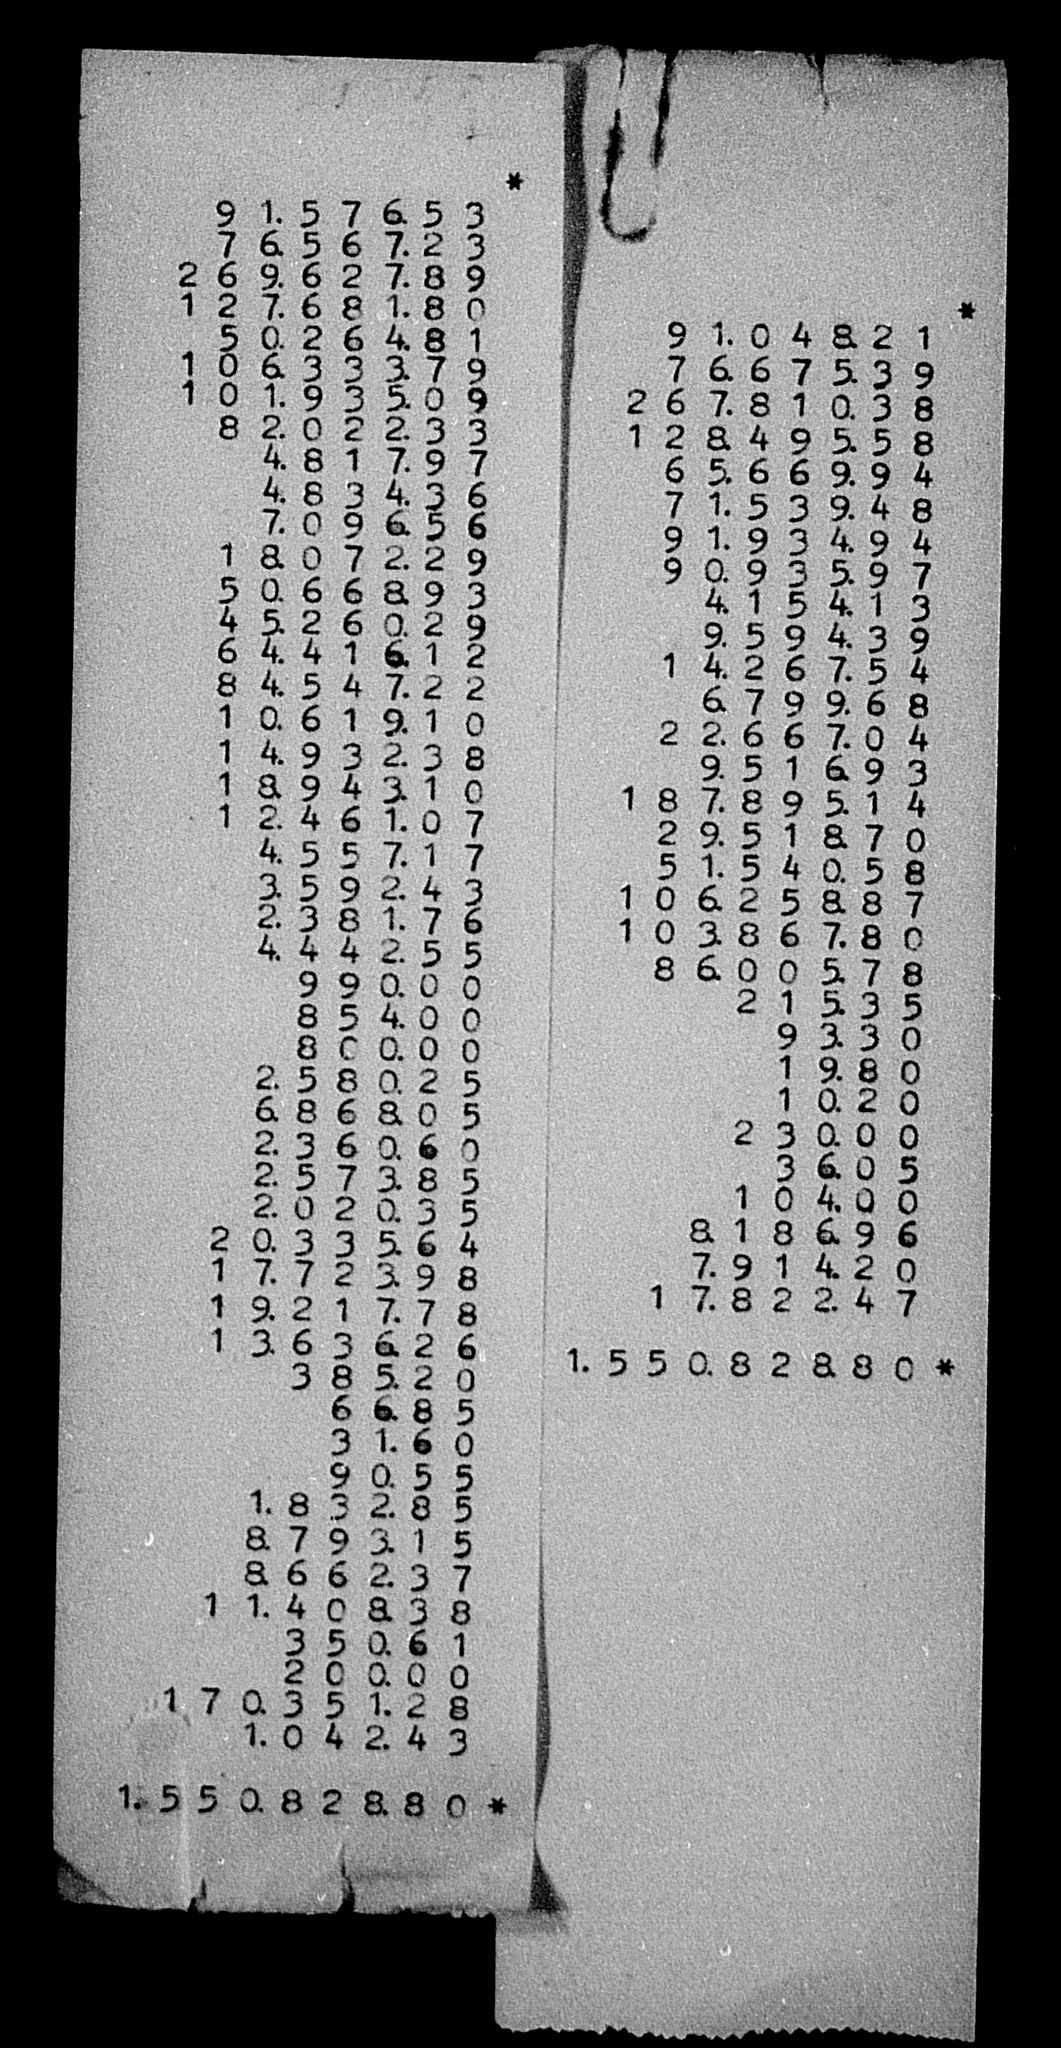 *
9 1. 5 7 6. 5 3
7 6. 5 6 7. 2 3
2 6 9. 6 2 7. 8 9
1 2 7. 6 8 1. 8 0
5 0. 2 6 4. 8 1
1 0 6. 3 3 3. 7 9
1 0 1. 9 3 5. 0 9
8 2. 0 2 2. 3 3
4. 8 1 7. 9 7
4. 8 3 4. 3 6
7. 0 9 6. 5 6
1 8. 0 7 2. 2 9
5 0. 6 6 8. 9 3
4 5. 2 6 0. 2 9
6 4. 4 1 6. 1 2
8 4. 5 4 7. 2 2
1 0. 6 1 9. 1 0
1 4. 9 3 2. 3 8
1 8. 9 4 3. 1 0
1 2. 4 6 1. 0 7
4. 5 5 7. 1 7
3. 5 9 2. 4 3
2. 3 8 1. 7 6
4. 4 4 2. 5 5
9 9 0. 0 0
8 5 4. 0 0
8 0 0. 0 0
2. 5 8 0. 2 5
6. 8 6 8. 0 5
2. 3 6 0. 6 0
2. 5 7 3. 8 5
2. 0 2 0. 3 5
2 0. 3 3 5. 6 4
1 7. 7 2 3. 9 8
1 9. 2 1 7. 7 8
1 3. 6 3 6. 2 6
3 8 5. 2 0
6 6. 8 5
3 1. 6 0
9 0. 5 5
1. 8 3 2. 8 5
8. 7 9 3. 1 5
8. 6 6 2. 3 7
1 1. 4 0 8. 3 8
3 5 0. 6 1
2 0 0. 0 0
1 7 0. 3 5 1. 2 8
1. 0 4 2. 4 3
1. 5 5 0. 8 2 8. 8 0 *
*
9 1. 0 4 8. 2 1
7 6. 6 7 5. 3 9
2 6 7. 8 1 0. 3 8
1 2 8. 4 9 5. 5 8
6 5. 6 6 9. 9 4
7 1. 5 3 9. 4 8
9 1. 9 3 4. 9 4
9 0. 9 3 5. 9 7
4. 1 5 4. 1 3
9. 5 9 4. 3 9
1 4. 2 6 7. 5 4
6. 7 9 9. 6 8
2 2. 6 6 7. 0 4
9. 5 1 6. 9 3
1 8 7. 8 9 5. 1 4
2 9. 5 1 8. 7 0
5 1. 5 4 0. 5 8
1 0 6. 2 5 8. 8 7
1 0 3. 8 6 7. 8 0
8 6. 0 0 5. 7 8
2 1 5. 3 5
9 3. 3 0
1 9. 8 0
1 0. 2 0
2 3 0. 0 0
3 6. 0 5
1 0 4. 0 0
8. 1 8 6. 9 6
7. 9 1 4. 2 0
1 7. 8 2 2. 4 7
1. 5 5 0. 8 2 8. 8 0 *